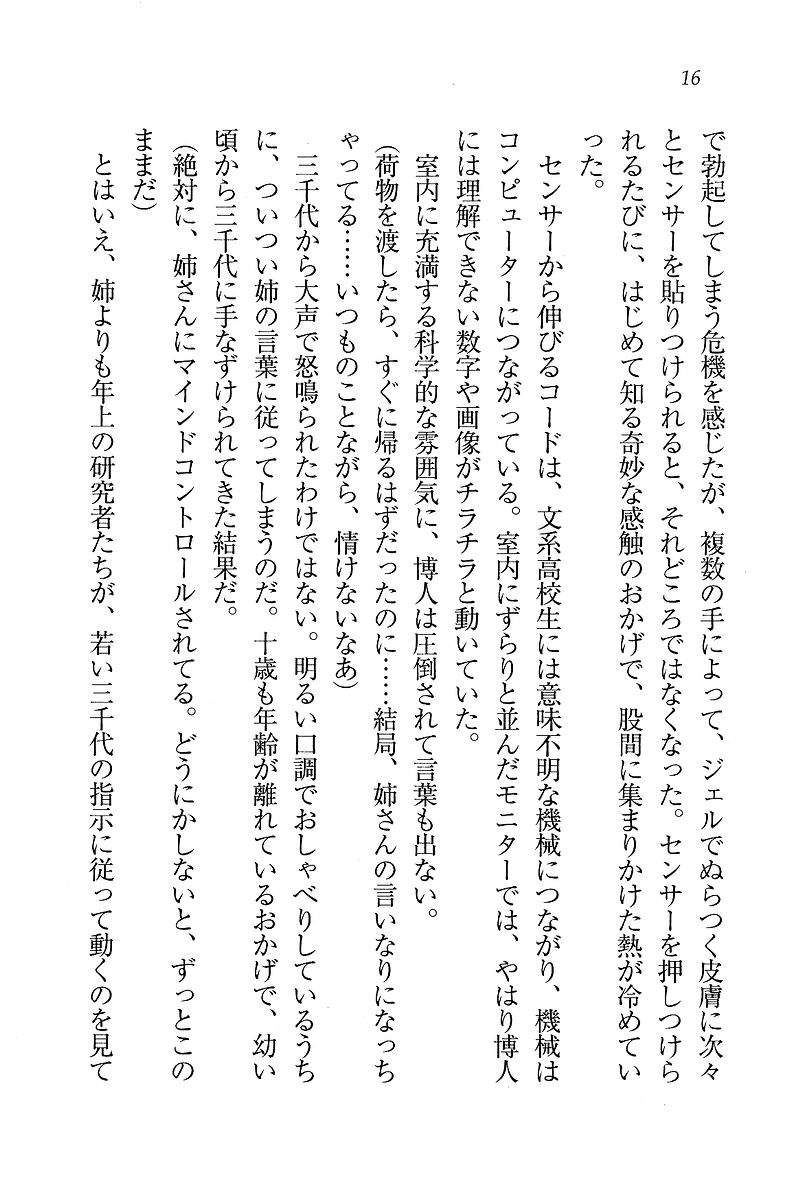 16
で勃起してしまう危機を感じたが、複数の手によって、ジェルでぬらつく皮膚に次々
とセンサーを貼りつけられると、それどころではなくなった。センサーを押しつけら
れるたびに、はじめて知る奇妙な感触のおかげで、股間に集まりかけた熱が冷めてい
った。
センサーから伸びるコードは、文系高校生には意味不明な機械につながり、機械は
コンピューターにつながっている。室内にずらりと並んだモニターでは、やはり博人
には理解できない数字や画像がチラチラと動いていた。
室内に充満する科学的な雰囲気に、博人は圧倒されて言葉も出ない。
（荷物を渡したら、すぐに帰るはずだったのに……結局、姉さんの言いなりになっち
ゃってる……いつものことながら、情けないなあ）
三千代から大声で怒鳴られたわけではない。明るい口調でおしゃべりしているうち
に、ついつい姉の言葉に従ってしまうのだ。十歳も年齢が離れているおかげで、幼い
頃から三千代に手なずけられてきた結果だ。
（絶対に、姉さんにマインドコントロールされてる。どうにかしないと、ずっとこの
ままだ）
とはいえ、姉よりも年上の研究者たちが、若い三千代の指示に従って動くのを見て